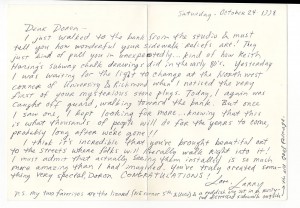 Saturday - October 24 1998
Dear Doron -
I just walked to the bank from the studio & must
tell you how wonderful your sidewalk reliefs are! They
just kind of pull you in unexpectedly... kind of how Keith
Haring's subway chalk drawings did in the early 80's. Yesterday
I was waiting for the light to change at the Northwest
corner of University & Richmond when I noticed the very
first of your mysterious stone plugs. Today, I again was
caught off guard, walking toward the bank. But once
I saw one, I kept looking for more... knowing that this
is what thousands of people will do for the years to come,
probably long after we're gone!!
I think it's incredible that you've brought beautiful art
to the streets where folks will literally walk right into it!
I must admit that actually seeing them installed is so much
more amazing than I had imagined. You've truly created some-
thing very special Doron CONGRATULATIONS!
Love - Lanny
P.S. My two favorites are the